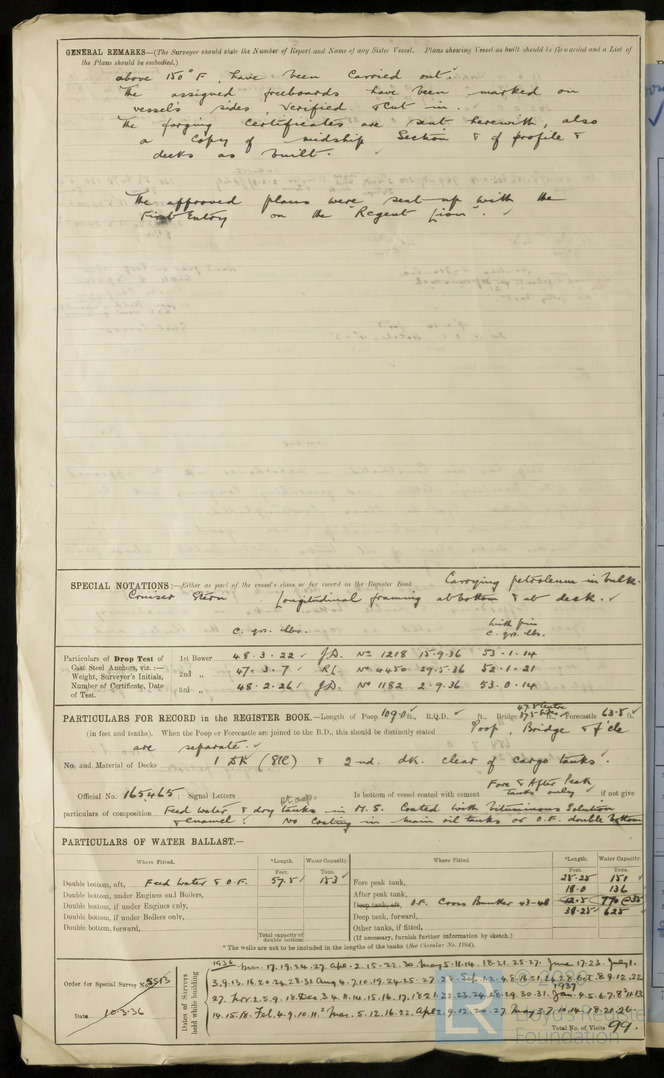 GENERAL REMARKS—(The Surveyor should state the Number of Report and Name of any Sister Vessel. Plans showing Vessel as built should be forwarded and a List of
the Plans should be embodied.)
above 150° F, have been carried out.
The assigned freeboards have been marked on
vessel's sides, verified & cut in.
The forging certificates are sent herewith, also
a copy of midship Section & of profile &
decks as built.
The approved plans were sent up with the
First Entry on the "Regent Lion".
SPECIAL NOTATIONS:—Either as part of the vessel's class or for record in the Register Book Carrying petroleum in bulk.
Cruiser Stern Longitudinal framing at bottom & at deck.
c. qrs. lbs. With pin c. qrs. lbs.
Particulars of Drop Test of Cast Steel Anchors, viz.:— Weight, Surveyor's Initials, Number of Certificate, Date of Test.
1st Bower 48-3-22 J.D. No 1218 15-9-36 53-1-14
2nd „ 47-3-7 No 4450 29-5-36 52-1-21
3rd „ 48-2-26 J.D. No 1182 2-9-36 53-0-14
PARTICULARS FOR RECORD in the REGISTER BOOK.—Length of Poop 109.0 ft., R.Q.D. ft., Bridge ft., Forecastle 63.5 ft.
(in feet and tenths). When the Poop or Forecastle are joined to the B.D., this should be distinctly stated Poop, Bridge & f'cle
are separate.
No. and Material of Decks 1 DK (Stl) & 2nd. dk. clear of cargo tanks.
Official No. 165465. Signal Letters Is bottom of vessel coated with cement Fore & After Peak tanks only if not give
particulars of composition Feed water & dry tanks in M.S. Coated with bituminous solution
& enamel: No coating in main oil tanks or O.F. double bottom
PARTICULARS OF WATER BALLAST.—
Where Fitted. *Length. Water-Capacity. Where Fitted. *Length. Water Capacity.
Feet. Tons. Feet. Tons.
Double bottom, aft, Feed water & O.F. 57.5 153 Fore peak tank, 25.25 151
Double bottom, under Engines and Boilers, After peak tank, 18.0 136
Double bottom, if under Engines only, Deep tank, aft, O.F. Cross Bunker 43-48 12.5 770 @35
Double bottom, if under Boilers only, Deep tank, forward, 38.25 625
Double bottom, forward, Other tanks, if fitted,
Total capacity of double bottom (If necessary, furnish further information by sketch.)
* The walls are not to be included in the lengths of the tanks (See Circular No. 1284).
Order for Special Survey No. 5513
Date 10-3-36
Dates of Surveys held while building
1936 Mar. 17. 19. 24. 27. Apr. 2. 15. 22. 30. May 5. 11. 14. 18. 21. 25. 27. June 17. 23. July 1.
3. 9. 13. 16. 20. 24. 28. 31. Aug 4. 7. 10. 19. 24. 25. 27. 28.
27. Nov. 2. 5. 9. 18. Dec. 3. 4. 11. 14. 15. 16. 17. 18. 21. 22. 23. 24. 28. 29. 30. 31. 1937 Jan. 4. 5. 6. 7. 8. 11. 13
14. 15. 18. Feb. 4. 9. 10. 11. Mar. 5. 12. 16. 22. Apr. 2. 9. 12. 20. 27. May 3. 7. 10. 14. 18. 21. 26.
Total No. of Visits 99.
LR
Lloyd's Register
Foundation